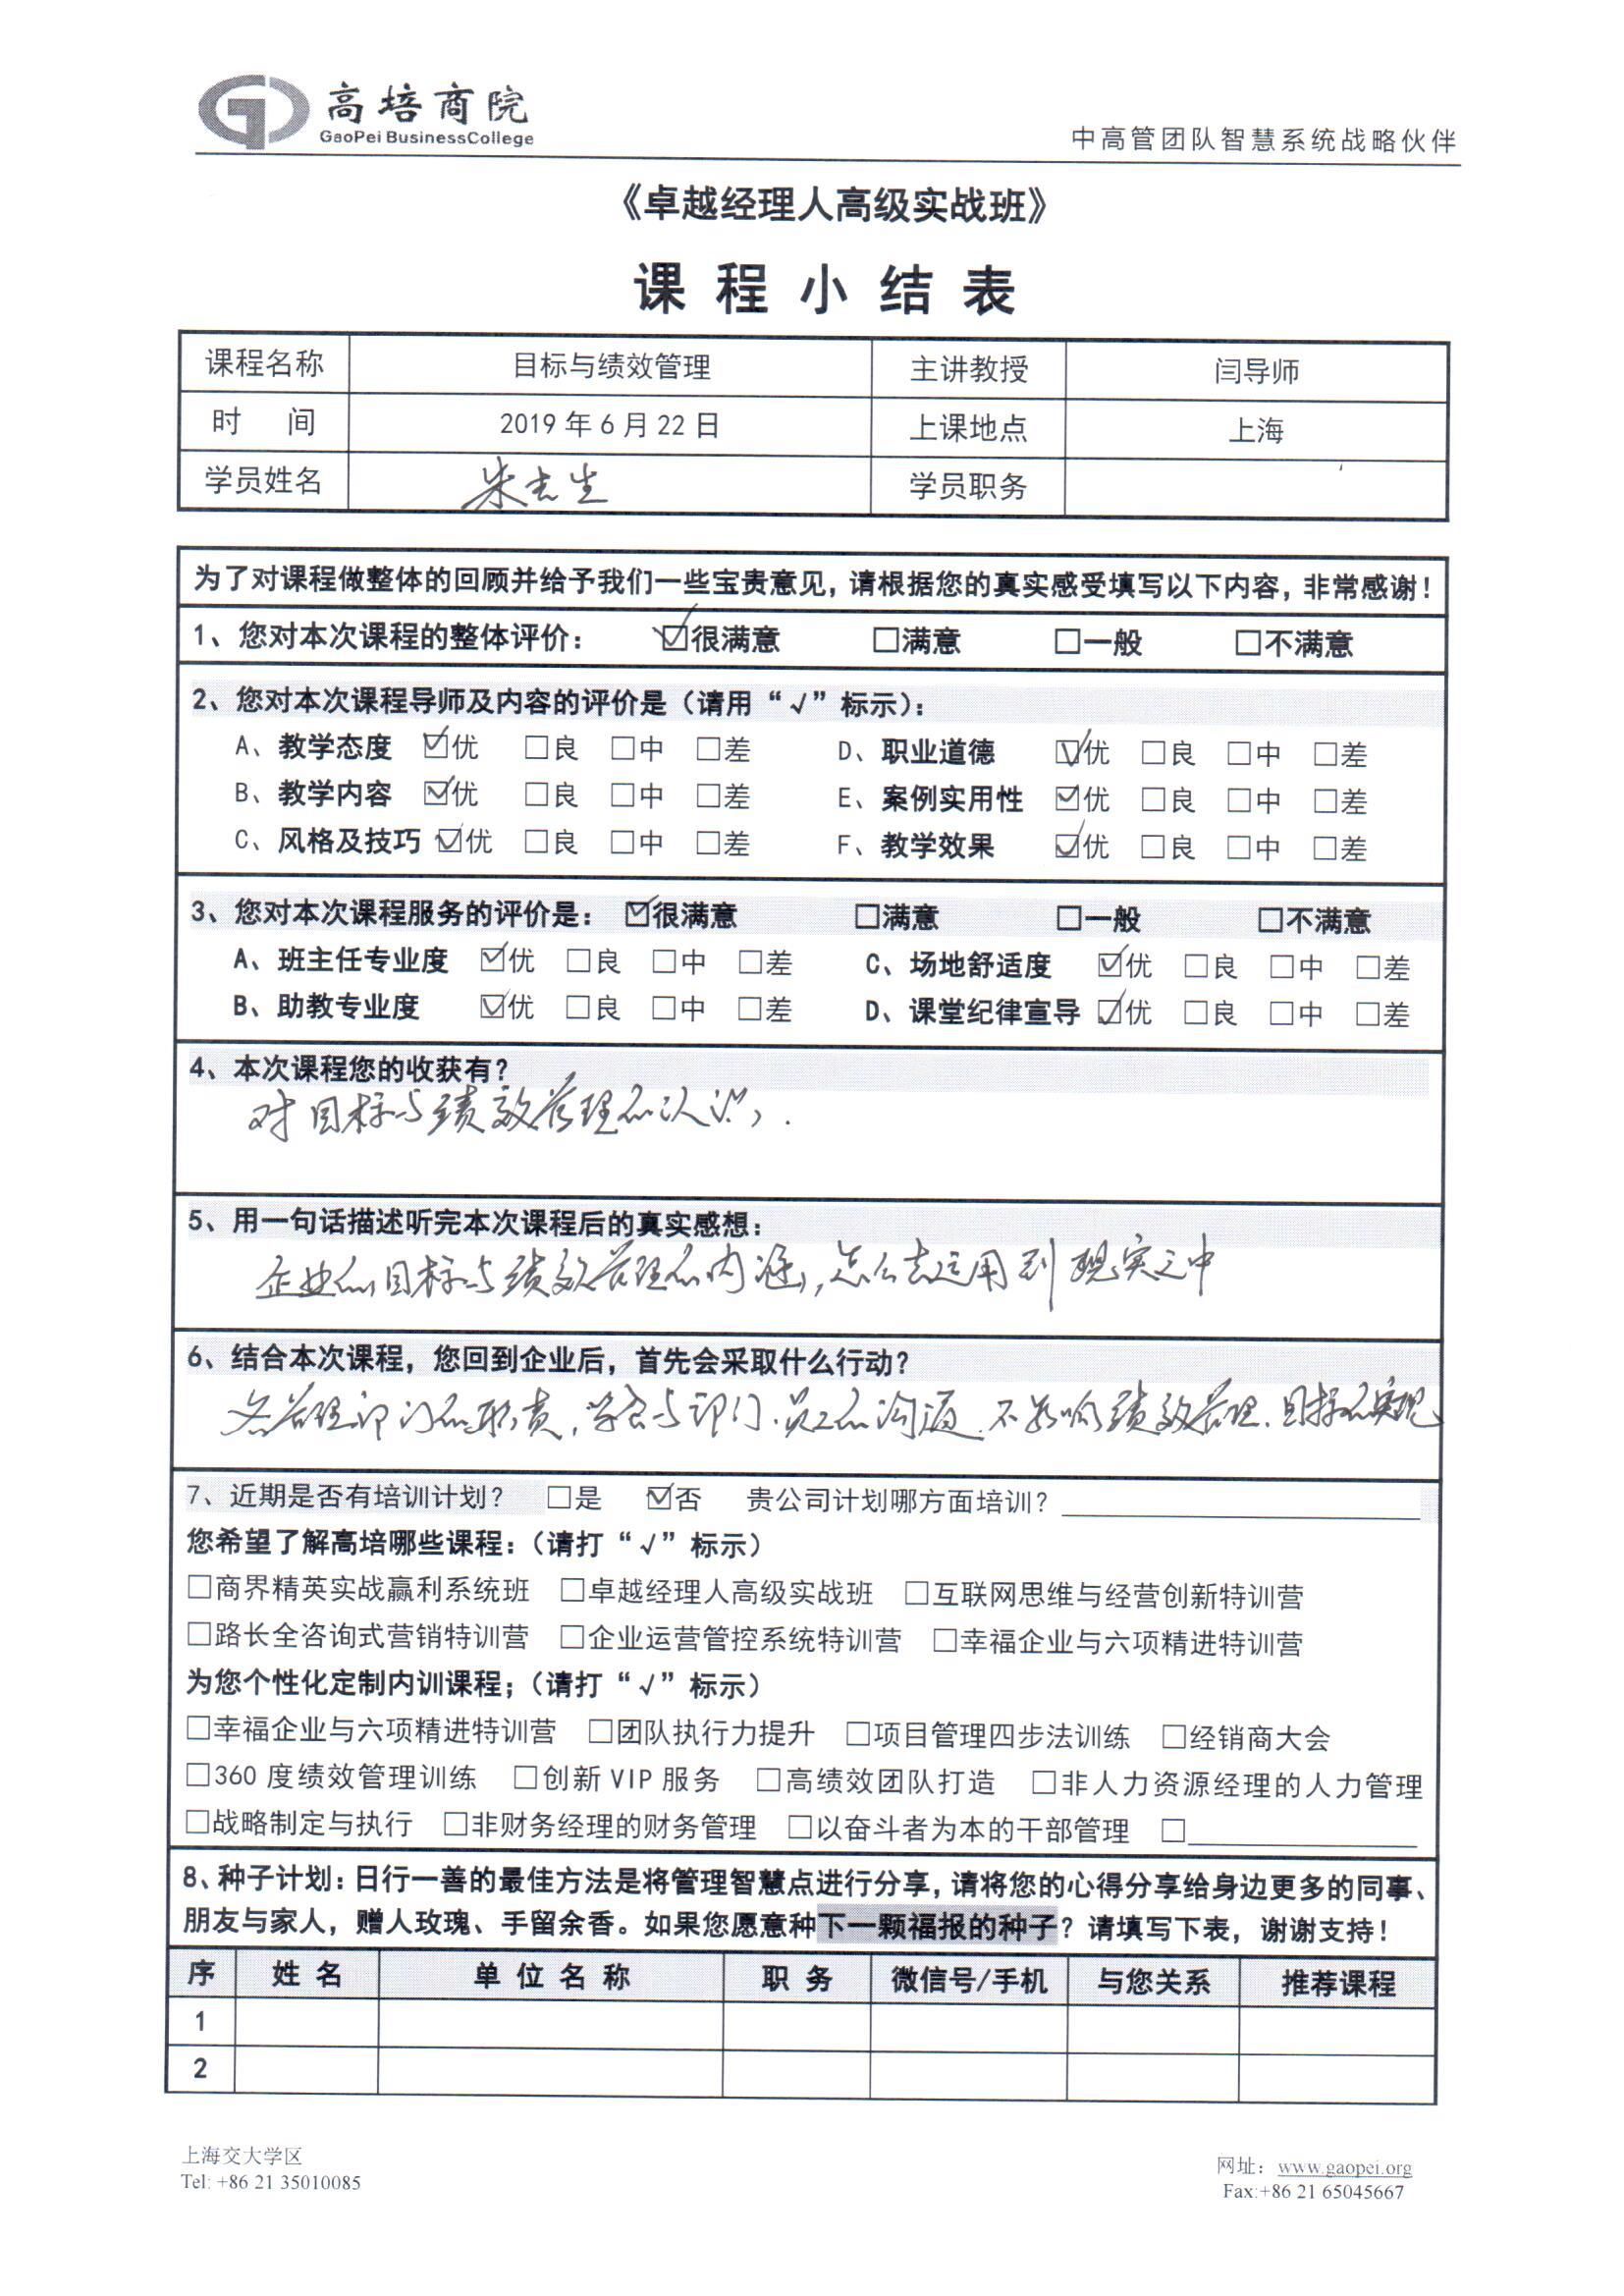 高培商院
GaoPei BusinessCollege
中高管团队智慧系统战略伙伴
《卓越经理人高级实战班》
课程小结表
课程名称 目标与绩效管理 主讲教授 闫导师
时 间 2019年6月22日 上课地点 上海
学员姓名 朱志生 学员职务
为了对课程做整体的回顾并给予我们一些宝贵意见，请根据您的真实感受填写以下内容，非常感谢！
1、您对本次课程的整体评价： ☑很满意 □满意 □一般 □不满意
2、您对本次课程导师及内容的评价是（请用“√”标示）：
A、教学态度 ☑优 □良 □中 □差 D、职业道德 ☑优 □良 □中 □差
B、教学内容 ☑优 □良 □中 □差 E、案例实用性 ☑优 □良 □中 □差
C、风格及技巧 ☑优 □良 □中 □差 F、教学效果 ☑优 □良 □中 □差
3、您对本次课程服务的评价是： ☑很满意 □满意 □一般 □不满意
A、班主任专业度 ☑优 □良 □中 □差 C、场地舒适度 ☑优 □良 □中 □差
B、助教专业度 ☑优 □良 □中 □差 D、课堂纪律宣导 ☑优 □良 □中 □差
4、本次课程您的收获有？
对目标与绩效管理的认识，.
5、用一句话描述听完本次课程后的真实感想：
企业的目标与绩效管理的内涵，怎么去运用到现实之中
6、结合本次课程，您回到企业后，首先会采取什么行动？
各管理部门的职责，学会与部门.员工的沟通.不影响绩效管理.目标的实现
7、近期是否有培训计划？ □是 ☑否 贵公司计划哪方面培训？
您希望了解高培哪些课程：（请打“√”标示）
□商界精英实战赢利系统班 □卓越经理人高级实战班 □互联网思维与经营创新特训营
□路长全咨询式营销特训营 □企业运营管控系统特训营 □幸福企业与六项精进特训营
为您个性化定制内训课程；（请打“√”标示）
□幸福企业与六项精进特训营 □团队执行力提升 □项目管理四步法训练 □经销商大会
□360度绩效管理训练 □创新VIP服务 □高绩效团队打造 □非人力资源经理的人力管理
□战略制定与执行 □非财务经理的财务管理 □以奋斗者为本的干部管理 □
8、种子计划：日行一善的最佳方法是将管理智慧点进行分享，请将您的心得分享给身边更多的同事、
朋友与家人，赠人玫瑰、手留余香。如果您愿意种下一颗福报的种子？请填写下表，谢谢支持！
序 姓名 单位名称 职务 微信号/手机 与您关系 推荐课程
1
2
上海交大学区
Tel: +86 21 35010085
网址： www.gaopei.org
Fax:+86 21 65045667